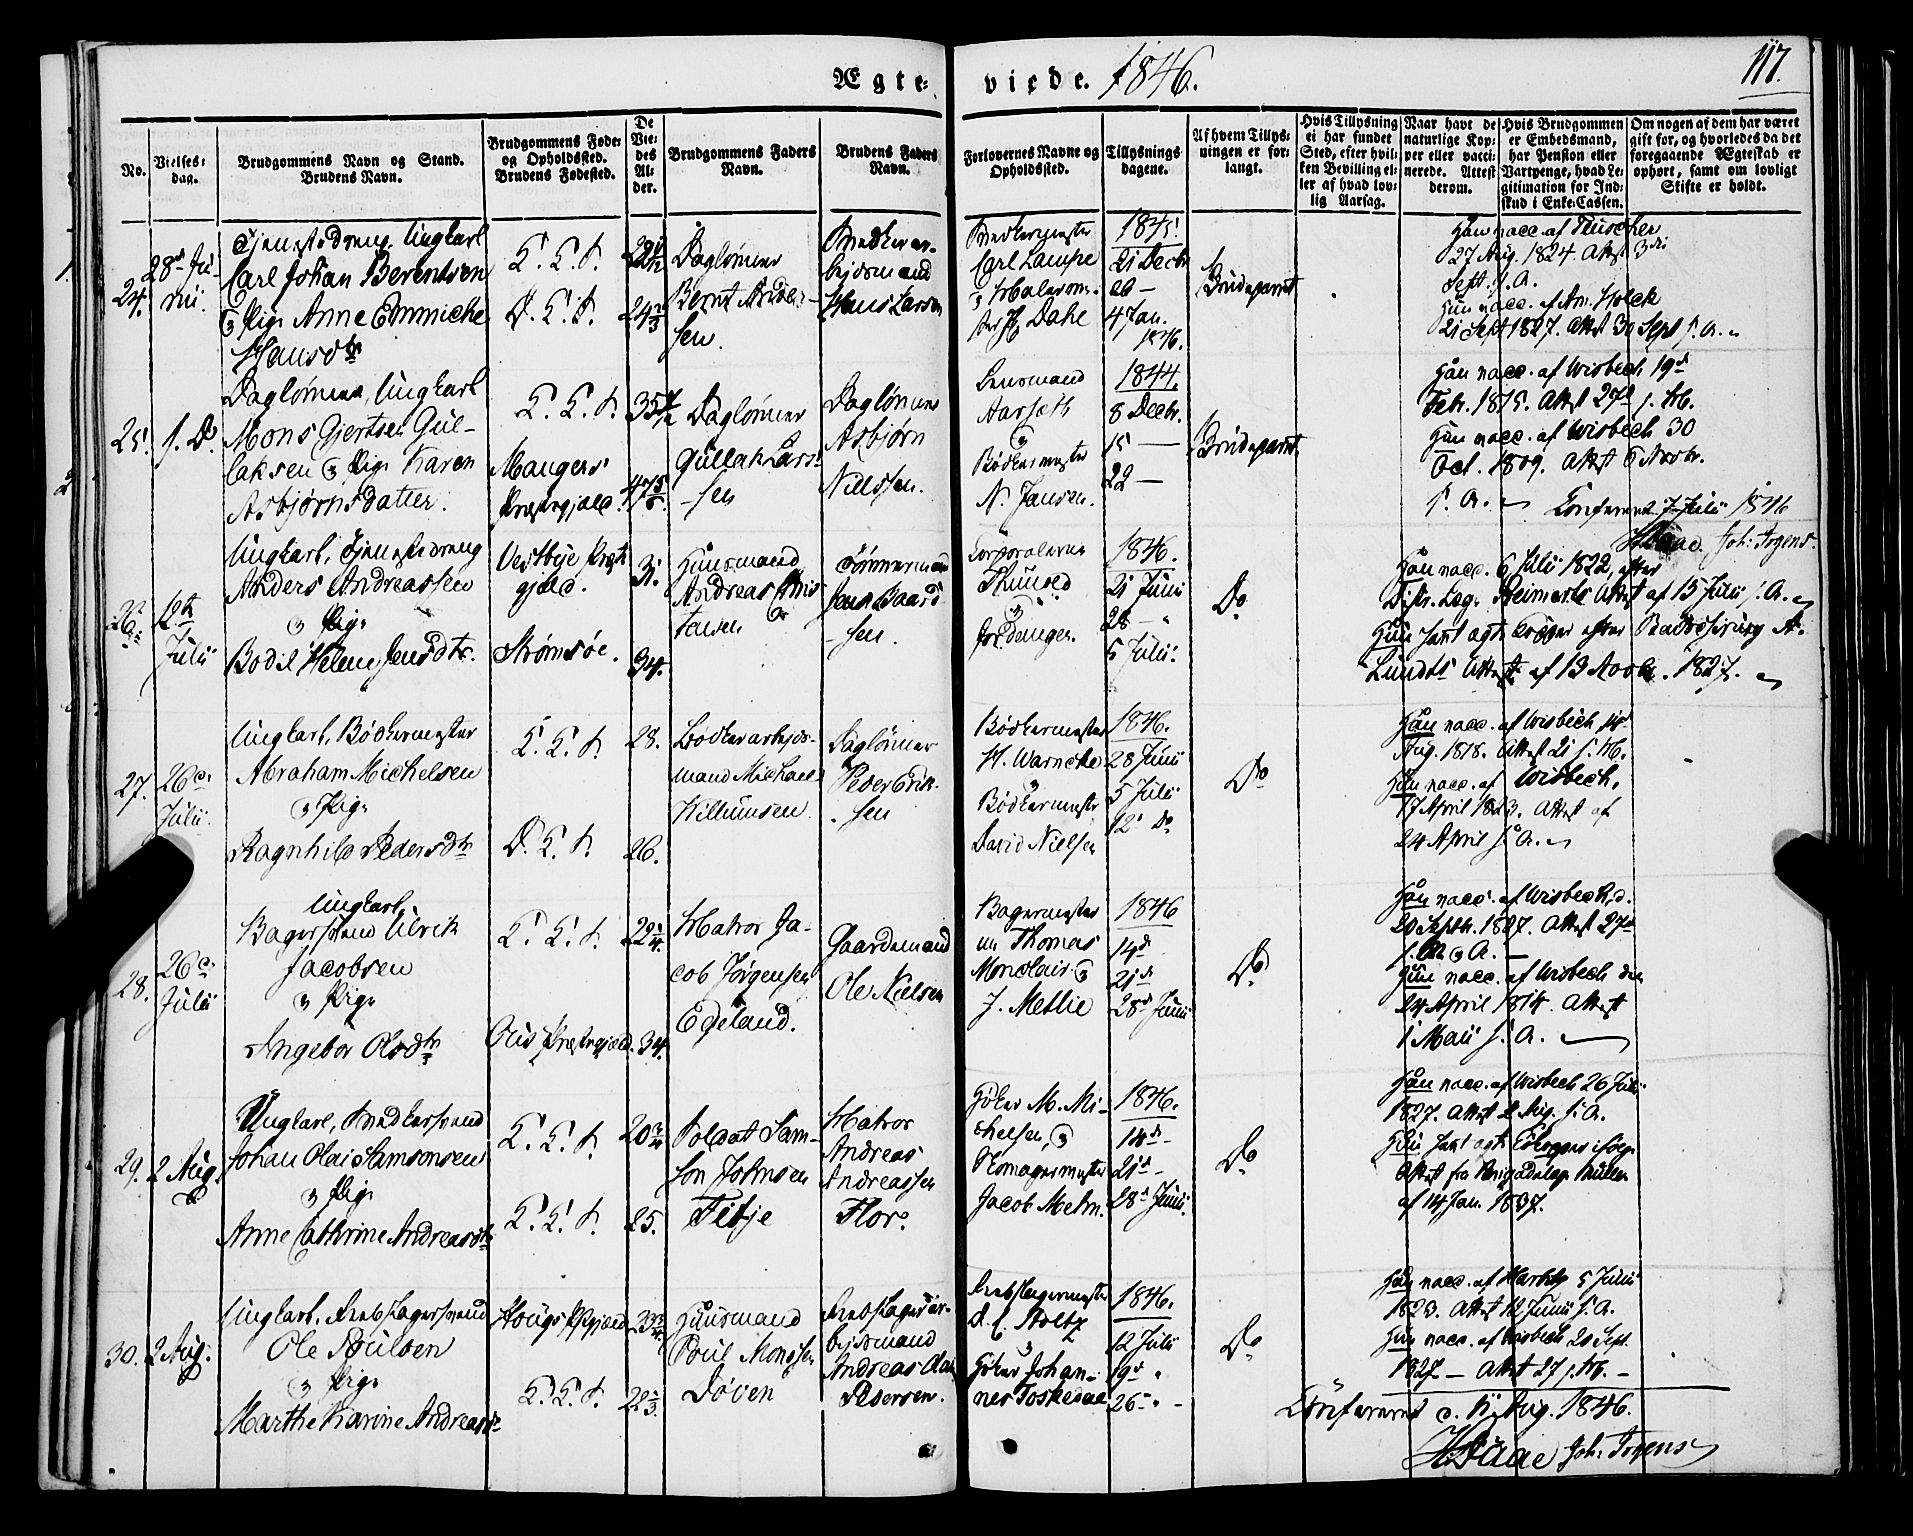 Ægte- viede. 1846.
117.
No.
Vielses-
dag.
Brudgommens Navn og Stand.
Brudens Navn.
Brudgommens Føde-
og Opholdssted.
Brudens Fødested.
De
Vie-
des
Al-
der.
Brudgommens Faders
Navn.
Brudens Faders
Navn.
Forlovernes Navne og
Opholdssted.
Tillysnings-
dagene.
Af hvem Tillys-
ningen er for-
langt.
Hvis Tillysning
ei har fundet
Sted, efter hvil-
ken Bevilling el-
ler af hvad lov-
lig Aarsag.
Naar havt de
naturlige Kop-
per eller vacci-
nerede. Attest
derom.
Hvis Brudgommen
er Embedsmand,
har Pension eller
Vartpenge, hvad Le-
gitimation for Ind-
skud i Enke-Cassen.
Om nogen af dem har været
gift før, og hvorledes da det
foregaaende Ægteskab er
ophørt, samt om lovligt
Skifte er holdt.
24.
28de Ju-
nii.
Tjenestedreng, Ungkarl
Carl Johan Berentsen
og Pige Anne Emmiche
Hansdtr
24 2/3
Daglønner
Bernt Ander-
sen.
Hans Larsen
Carl Lampe
Dahl
1845.
21 Decbr
4 Jan.
1846.
Brudeparret
Han vacc. af
27 Aug. 1824. Attest 3die
Sept. s. A.
Hun vacc. af Am. Holck
21 Sept 1827. Attest 30 Sept s. A.
25.
s. D.
Daglønner, Ungkarl
Mons Gjertsen Gul-
laksen og Pige Karen
Asbjørnsdatter.
Mangers
Præstegjæld.
Daglønner
Gullak Lars-
sen
Daglønner
Asbjørn
Nillssen.
Lensmand
Aarseth
og
Bødkermester
N. Jansen.
1844.
8 Decbr.
15 —
22 —
Brudeparret
Han vacc. af Wisbech 19de
Febr. 1815. Attest 27de s. M.
Hun vacc. af Wisbech 30
Oct. 1809. Attest 6 Novbr.
s. A.
Confereret 7 Julii 1846
Joh. Irgens.
26.
12te
Julii
Ungkarl, Tjenestedreng
Anders Andreassen
og Pige
Bodil Helene Jensdtr.
Vestbye Præste
gjæld.
Strømsøe.
31.
34.
Huusmand
Andreas Chris
tensen
Tømmermand
Jens Baard
-sen.
Corporalerne
Thunold
og
Jordanger.
1846.
21 Junii
28 — "
5 Julii.
Do
Han vacc. 6 Julii 1822, efter
Distr. Læge Reimers Attest af 15 Julii s. A.
Lundts Attest af 13 Novbr. 1827.
27.
26de
Julii.
Ungkarl, Bødkermester
Abraham Michelsen
og Pige
Ragnhild Pedersdtr
28.
26.
Bødkerarbejds-
mand Michael
Willumsen.
Daglønner
Peder Erik-
sen
Bødkermester
H. Warncke
og
Bødkermester
David Nielsen
1846.
28 Junii
5 Julii
12 Do
Do
Han vacc. af Wisbech 14de
Aug. 1818. Attest 21 s. M.
Hun vacc. af Wisbech.
17 April 1823. Attest af
24 April s. A.
28.
26de
Julii
Ungkarl,
Bagersvend Ulrik
Jacobsen
og Pige
Ingebor Olsdtr
Ous Præstegjæld.
22 1/4.
34.
Matros Ja-
cob Jørgensen
Egeland.
Gaardmand
Ole Nielsen
Bagermester
ne Thomas
Monclair og
J. Meltie
1846
14de
21de
28de Junii
Do
Han vacc. af Wisbech d.
20 Septb. 1827. Attest 27de
s. M og A.
Hun vacc. af Wisbech den
24 April 1814. Attest
1 Maii s. A.
29.
2 Aug.
Ungkarl, Snedkersvend
Johan Olai Samsonsen
og Pige
Anne Cathrine Andreasdtr
20 3/4
25.
Soldat Sam-
son Johnsen
Fitje
Matros
Andreas
Andreassen
Flor.
Høker M. Mi-
chelsen, og
Skomagermester
Jacob Mehn.
1846.
14de —
21de —
28de Junii.
Do
Han vacc. af Wisbech 26 Julii
1827. Attest 2 Aug. s. A.
Attest fra Brigadelæge Müller
af 14 Jan. 1837.
30.
2 Aug.
Ungkarl, Rebslagersvend
Ole Poulsen
og Pige
Marthe Karine Andreasdtr
Hougs Pgjæld
23 3/4.
22 2/3.
Huusmand
Poul Monssen
Døven
Rebslagerar-
beidsmand
Andreas Olai
Pedersen.
Rebslagermester
d. C. Stoltz
og
Høker Johan-
nes Toskedal
1846.
12 Julii
19de "
26 — "
Do
Han vacc. af Hartwig 5 Junii
1823. Attest 12 Junii s. A.
Hun vacc. af Wisbech 20 Sept.
1827 — Attest 27 s. M. —
Confereret d. 11 Aug. 1846.
Joh. Irgens